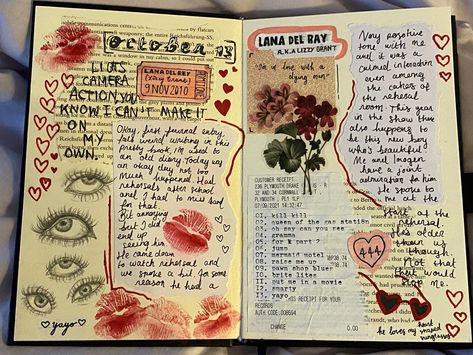 October 13
LIGHTS
CAMERA
ACTION, YOU
KNOW, I CAN'T MAKE IT
ON MY
OWN.
LANA DEL RAY
(Lizzy Grant)
9 NOV 2010
Okay, first journal entry,
feels weird writing in this
pretty book, I'm used to
an old diary. Today was
an okay day not too
much happened. Had
rehearsals after school
and I had to miss band
for that
Bit annoying
but I did
end up
seeing him.
He came down
to watch rehearsal and
we spoke a bit, for some
reason he had a
yayo
LANA DEL RAY
A.K.A LIZZY GRANT
"I'm in love with a
dying man"
CUSTOMER RECEIPT
236 PLYMOUTH DRAKE
32 AND 34 CORNWALL
PLYMOUTH , PL1 1LP
07/08/2021 14:32:47
01, kill kill
0t, queen of the gas station
03, oh say can you see
04, gramma
05, for k part 2
06, jump
07, mermaid motel
08, raise me up
09, pawn shop blues
10, brite lites
11, put me in a movie
12, smarty
13, yayo
THIS RECEIPT FOR YOUR
RECORDS
AUTH CODE:008594
CHANGE 0.00
Very positive
tone with me
and it was a
casual interaction
even among
the chaos of
the rehearsal
room. This year
in the show this
also happens to
be this new boy
who's beautiful.
Me and Imogen
have a joint
admiration for him
He spoke to
me at the
start of the
rehearsal.
He's older
than us
though
not that
that would
stop me.
444
he loves my heart
shaped
sunglasses